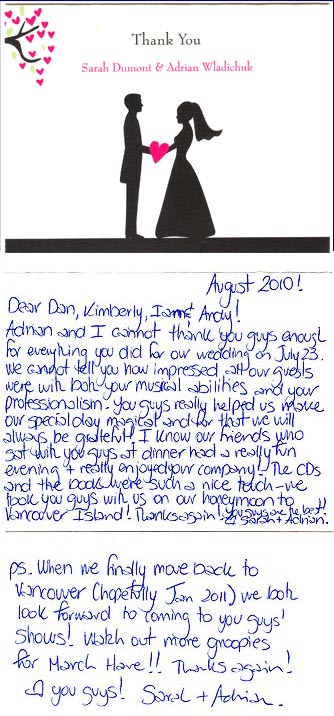 Thank You
Sarah Dumont & Adrian Wladichuk
August 2010!
Dear Dan, Kimberly, Ian & Andy!
Adrian and I cannot thank you guys enough
for everything you did for our wedding on July 23.
We cannot tell you how impressed all our guests
were with both your musical abilities and your
professionalism. You guys really helped us make
our special day magical and for that we will
always be grateful! I know our friends who
sat with you guys at dinner had a really fun
evening + really enjoyed your company! The CDs
and the book were such a nice touch - we
took you guys with us on our honeymoon to
Vancouver Island! Thanks again! You guys are the best!
Sarah + Adrian.
ps. When we finally move back to
Vancouver (hopefully Jan 2011) we both
look forward to coming to you guys'
shows! Watch out more groopies
for March Hare!! Thanks again!
♡ you guys! Sarah + Adrian.